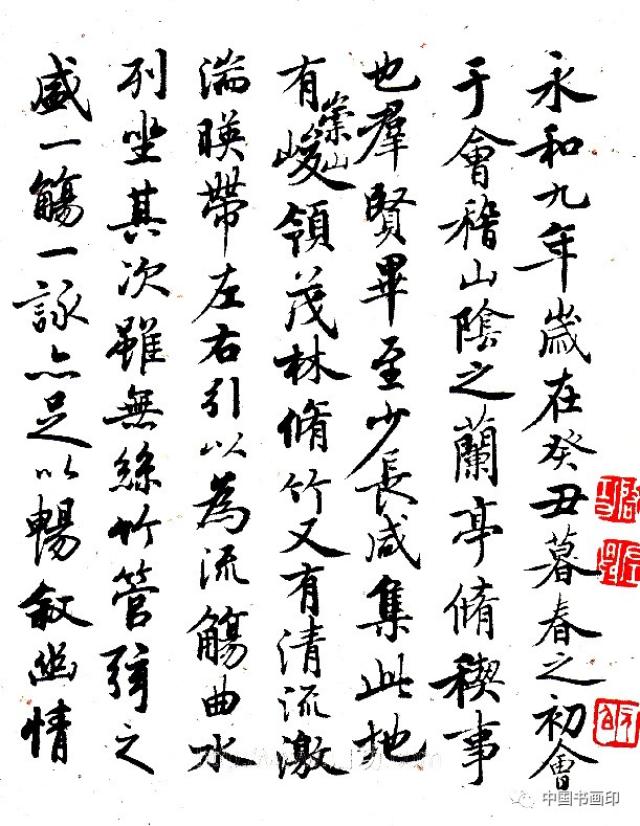 永和九年歲在癸丑暮春之初會
于會稽山陰之蘭亭脩稧事
也羣賢畢至少長咸集此地
有崇山峻領茂林脩竹又有清流激
湍暎帶左右引以為流觴曲水
列坐其次雖無絲竹管弦之
盛一觴一詠亦足以暢敘幽情
中国书画印